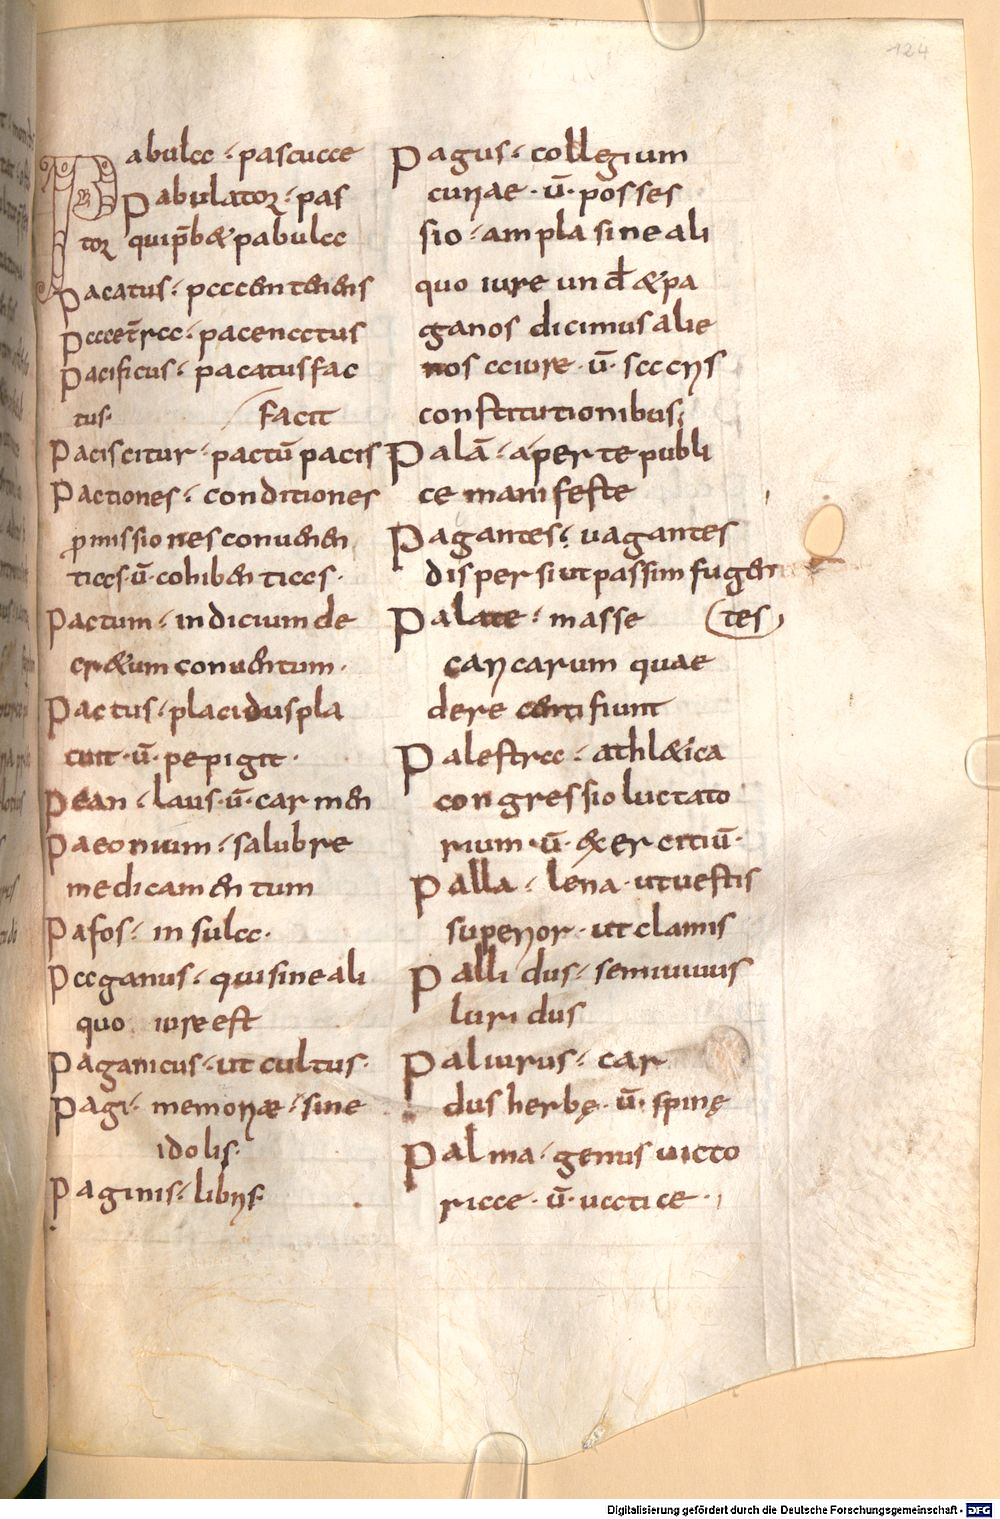 124
Pabula · pascuae
Pabulator · pas
tor qui p̄b& pabula
Pacatus · pacem tenens
pacificus · pacatus fac
tus· facit
Paciscitur · pactū pacis
Pactiones · conditiones
p̱missiones conuenen
ties ū cohibenties·
Pactum · indicium de
er&um conuentum·
Pactus · placidus pla
cuit · ū · pepigit ·
Pean · laus · ū · carmen
paeonium · salubre
medicamentum
Pafos · insula·
Paganus · qui sine ali
quo iure est
Paganicus · ut cultus·
Pagi · memoriæ · sine
idolis·
Paginis · libris
Pagus · collegium
curiae · ū · posses
sio · ampla sine ali
quo iure und& pa
ganos dicimus alie
nos a iure · ū · sacris
constitutionibus;
Palā · aperte publi
ce manifeste
Pagantes · uagantes
dispersi ut passim fugen
tes
Palate · masse
caricarum quae
dere certi fiunt
Palestra · athl&ica
congressio luctato
rium · ū · exercitiū·
Palla · lena · ut uestis
superior · ut clamis
Pallidus · semiuiuus
luridus
Paliurus · car
dus herbę · ū · spinę
Palma · genus uicto
riae · ū · uatice ·
Digitalisierung gefördert durch die Deutsche Forschungsgemeinschaft - DFG